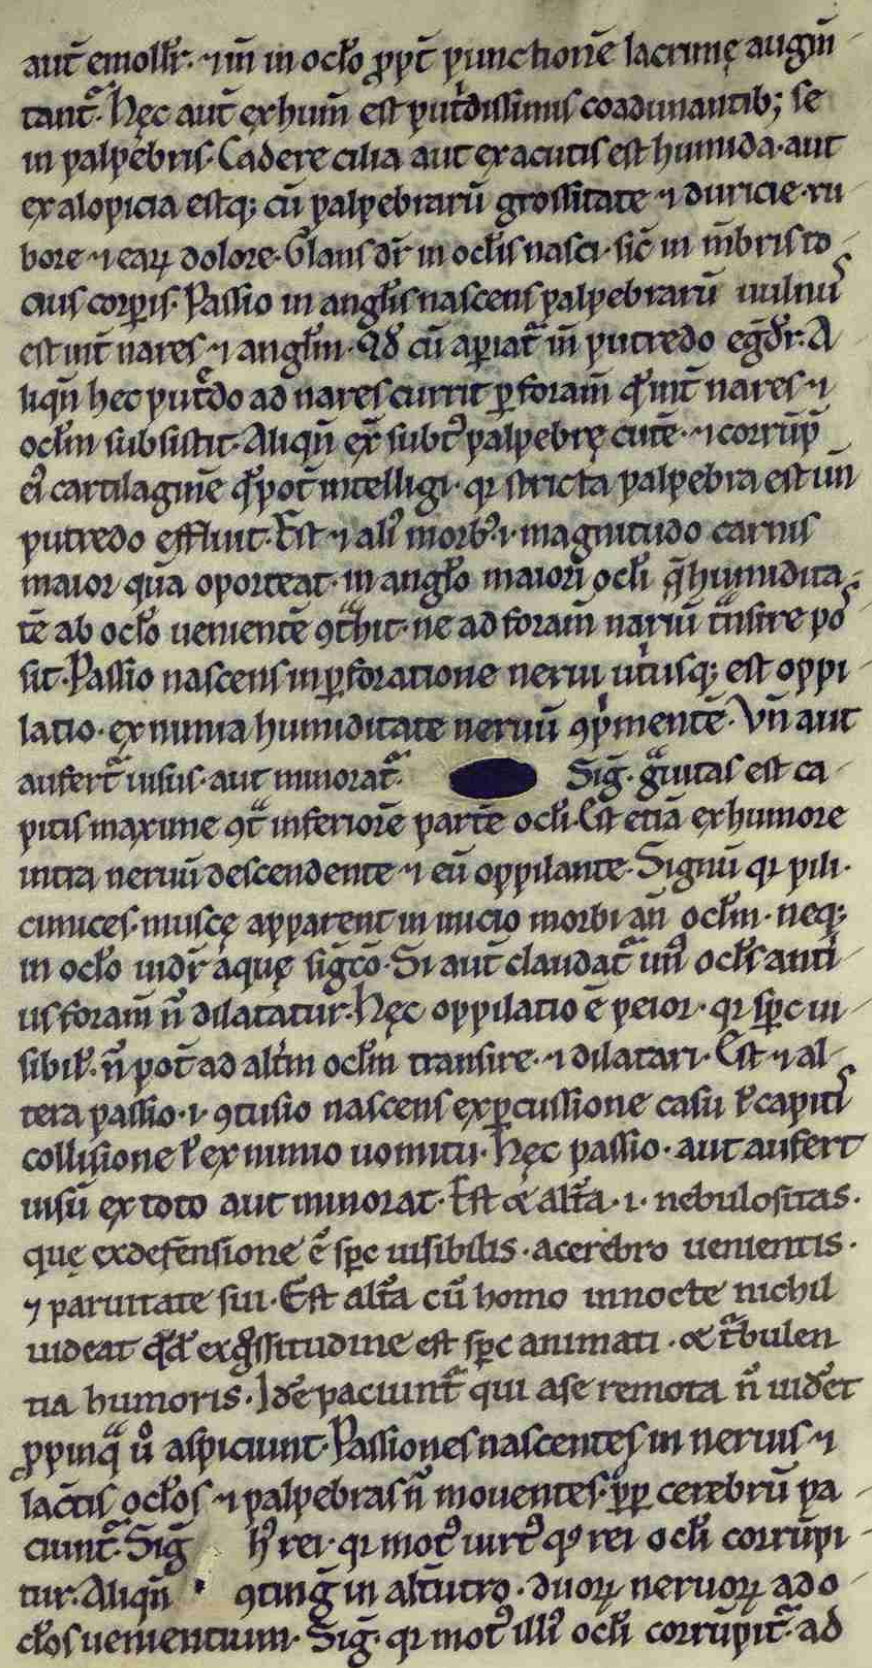 aut̄ emollr̄. ⁊ iñ in oclo ꝓpt̄ punctionē lacrimę augm̄
tant᷑. Hęc aut̄ ex hum̄ est put̾dissimis coadunantib; se
in palpebris. Cadere cilia aut ex acutis est humida. aut
ex alopicia estq; cū palpebrarū grossitate ⁊ duricie. ru
bore ⁊ eaꝝ dolore. Glans dr̄ in oclis nasci. sic̄ in m̄bris to
cius corꝑis. Passio in anglis nascens palpebrarū uulnus
est int̄ nares ⁊ anglm̄. Qd̄ cū aꝑiat᷑ iñ putredo egd̾r. A
liqn̄ hec put̾do ad nares currit ꝑ foram̄ qd̾ int̄ nares ⁊
oclm̄ subsistit. Aliqn̄ ex̄ subt᷒ palpebrę cutē. ⁊ corrūp̄
ei᷒ cartilaginē qd̾ pot̄ intelligi. qꝛ stricta palpebra est un̄
putredo effluit. Est ⁊ ali᷒ morb᷒. i. magnitudo carnis
maior quā oporteat. in anglo maiori ocli q̄ humidita
tē ab oclo uenientē ꝯt̾hit. ne ad foram̄ nariū t̾nsire pos
sit. Passio nascens in ꝑforatione nerui ut̾usq; est oppi
latio. ex nimia humiditate neruū ꝯp̾mentē. Vn̄ aut
aufert᷑ uisus. aut minorat᷑. Sig̅. g̾uitas est ca
pitis maxime ꝯt̾ inferiorē partē ocli. Est etiā ex humore
intra neruū descendente ⁊ eū oppilante. Signū qꝛ pili.
cimices. muscę apparent in inicio morbi an̄ oclm̄. neq;
in oclo uidr̄ aquę sig̅co᷒. Si aut̄ claudat᷑ un᷒ ocls anti
us foram̄ n̄ dilatatur. Hęc oppilatio ē peior. qꝛ spc ui
sibil᷒. n̄ pot̄ ad alt̾m oclm̄ transire. ⁊ dilatari. Est ⁊ al
tera passio. i. ꝯtusio nascens ex ꝑcussione casu ł capitis
collisione ł ex nimio uomitu. Hęc passio. aut aufert
uisū ex toto aut minorat. Est & alt̾a. i. nebulositas.
quę ex defensione ē spc uisibilis. a cerebro uenientis.
⁊ paruitate sui. Est alt̾a cū homo in nocte nichil
uideat qd̾ ex g̾ssitudine est spc animati. & t̾bulen
tia humoris. Idē paciunt᷑ qui a se remota n̄ uidet
ꝓpinq̾ u᷒ aspiciunt. Passiones nascentes in neruis ⁊
lac̄tis oclos ⁊ palpebras n̄ mouentes. ꝓp̄ cerebrū pa
ciunt᷑. Sig̅ h᷒ rei. qꝛ mot᷒ uirt᷒ rei ocli corrūpi
tur. Aliqn̄ ꝯting̅ in alt̾utro. duoꝝ neruoꝝ ad o
clos uenientium. Sig̅. qꝛ mot᷒ illi᷒ ocli corrūpit᷑. ad